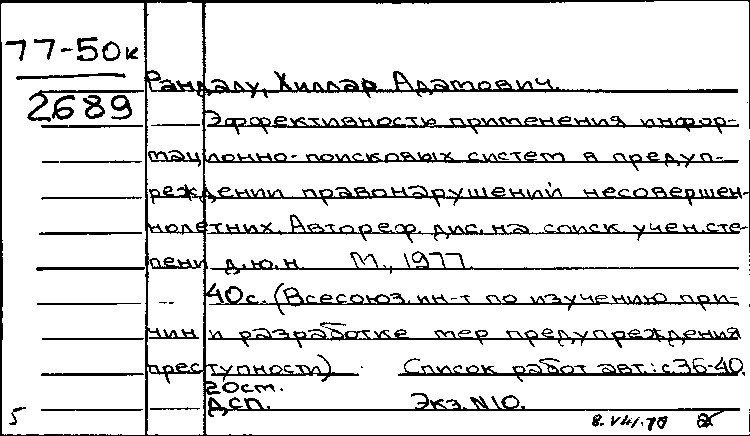 77-50к
2689
Рандалу, Хиллар Адамович.
Эффективность применения инфор-
мационно-поисковых систем в предуп-
реждении правонарушений несовершен-
нолетних. Автореф. дис. на соиск. учен. сте-
пени д.ю.н. М., 1977.
40с. (Всесоюз. ин-т по изучению при-
чин и разработке мер предупреждения
преступности) Список работ авт.: с.36-40.
20см.
ДСП. Экз. N10.
5 8.VIII.78